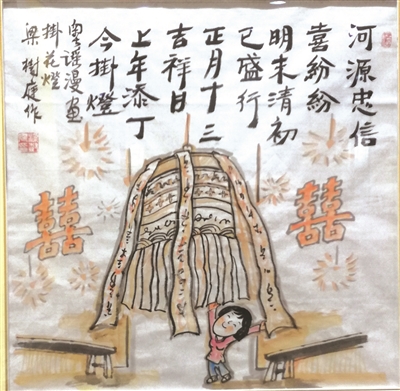 河源忠信
喜紛紛
明末清初
已盛行
正月十三
吉祥日
上年添丁
今掛燈
粤謠漫畫
掛花燈
梁樹作
囍
囍